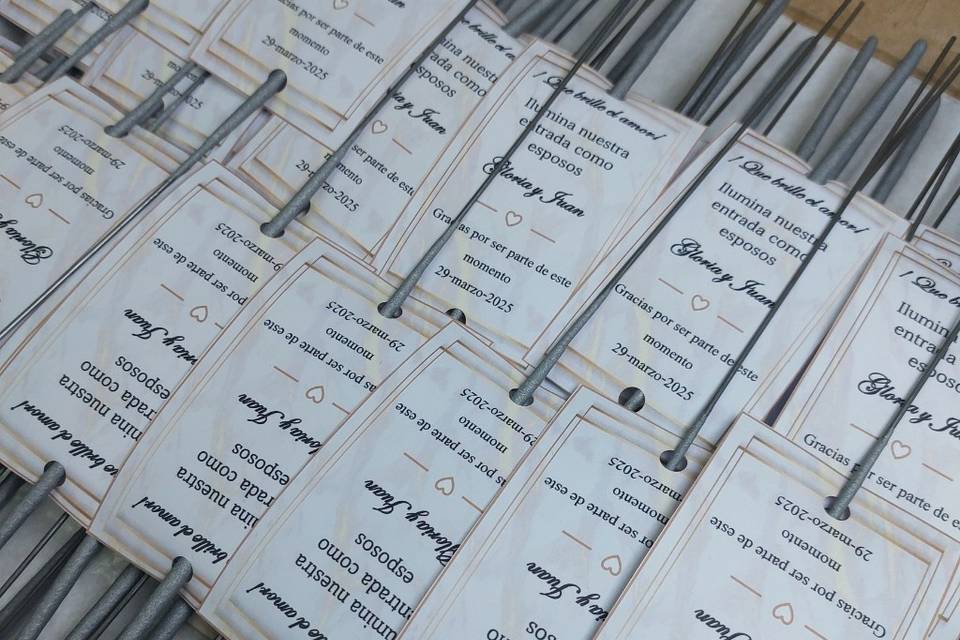 ¡ Que brille el amor!
Ilumina nuestra
entrada como
esposos
Gloria y Juan
Gracias por ser parte de este
momento
29-marzo-2025